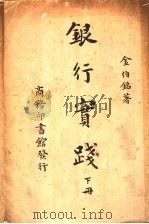 金伯銘著
銀行實踐
下册
商務印書館發行